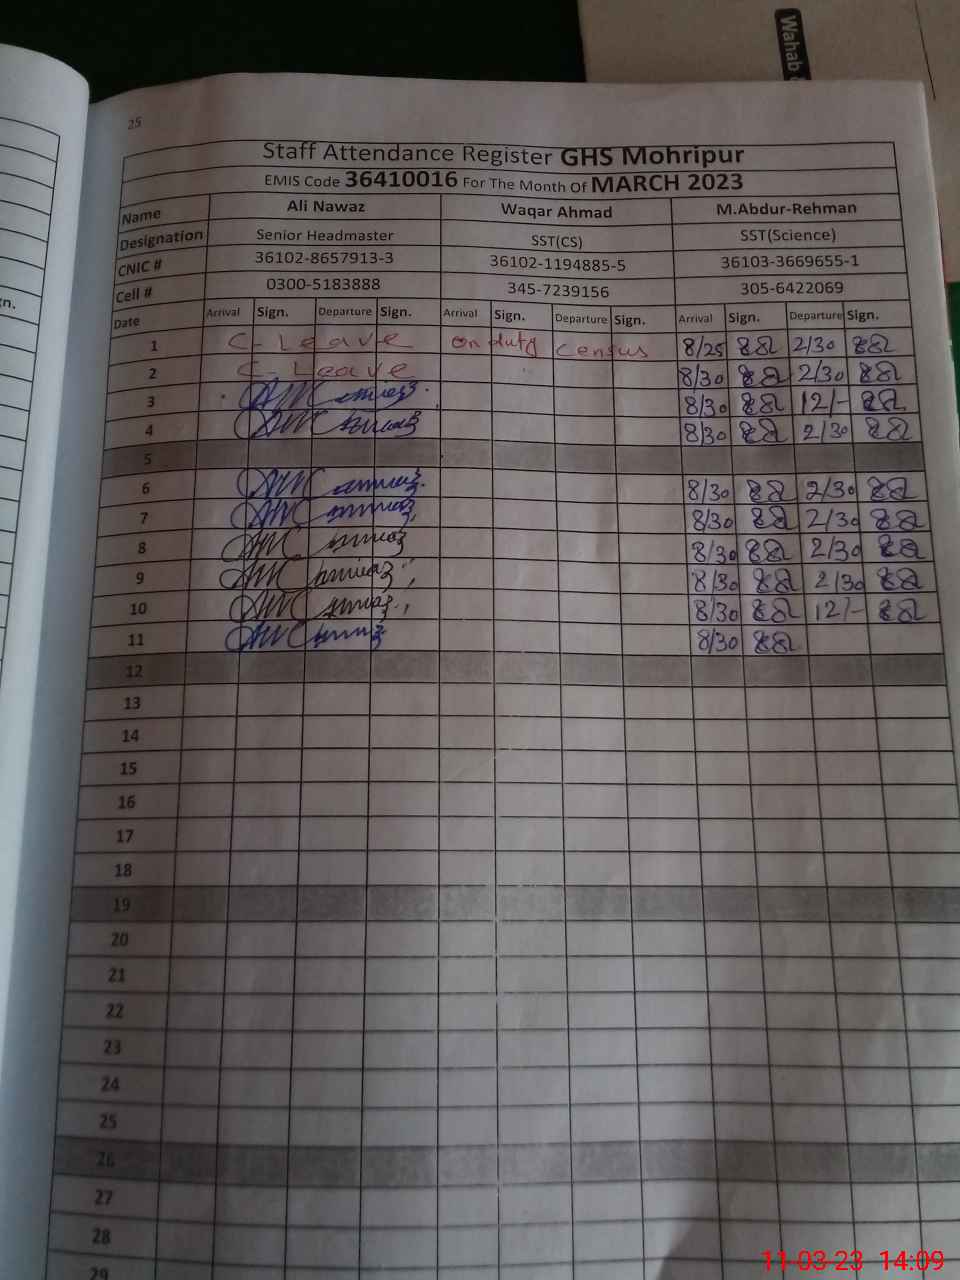 Wahab
25
Staff Attendance Register GHS Mohripur
EMIS Code 36410016 For The Month Of MARCH 2023
Name Ali Nawaz Waqar Ahmad M.Abdur-Rehman
Designation Senior Headmaster SST(CS) SST(Science)
CNIC # 36102-8657913-3 36102-1194885-5 36103-3669655-1
Cell # 0300-5183888 345-7239156 305-6422069
Date Arrival Sign. Departure Sign. Arrival Sign. Departure Sign. Arrival Sign. Departure Sign.
1 C-Leave on duty Census 8/25 2/30
2 C-Leave 8/30 2/30
3 8/30 12/-
4 8/30 2/30
5
6 8/30 2/30
7 8/30 2/30
8 8/30 2/30
9 8/30 2/30
10 8/30 12/-
11 8/30
12
13
14
15
16
17
18
19
20
21
22
23
24
25
26
27
28
29
11-03-23 14:09